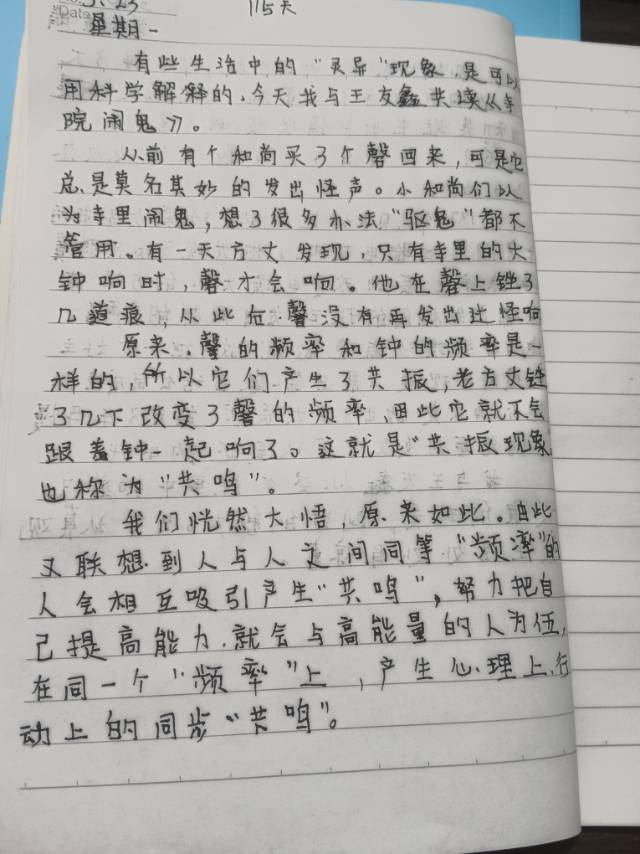 Date
5.23
115天
星期一
有些生活中的“灵异”现象,是可以
用科学解释的,今天我与王友鑫共读《寺
院闹鬼》。
从前有个和尚买了个磬回来,可是它
总是莫名其妙的发出怪声。小和尚们以
为寺里闹鬼,想了很多办法“驱鬼”都不
管用。有一天方丈发现,只有寺里的大
钟响时,磬才会响。他在磬上锉了
几道痕,从此后,磬没有再发出过怪响
原来,磬的频率和钟的频率是一
样的,所以它们产生了共振,老方丈锉
了几下改变了磬的频率,因此它就不会
跟着钟一起响了。这就是“共振现象
也称为“共鸣”。
我们恍然大悟,原来如此。由此
又联想到人与人之间同等“频率”的
人会相互吸引产生“共鸣”,努力把自
己提高能力,就会与高能量的人为伍,
在同一个“频率”上,产生心理上、行
动上的同步“共鸣”。